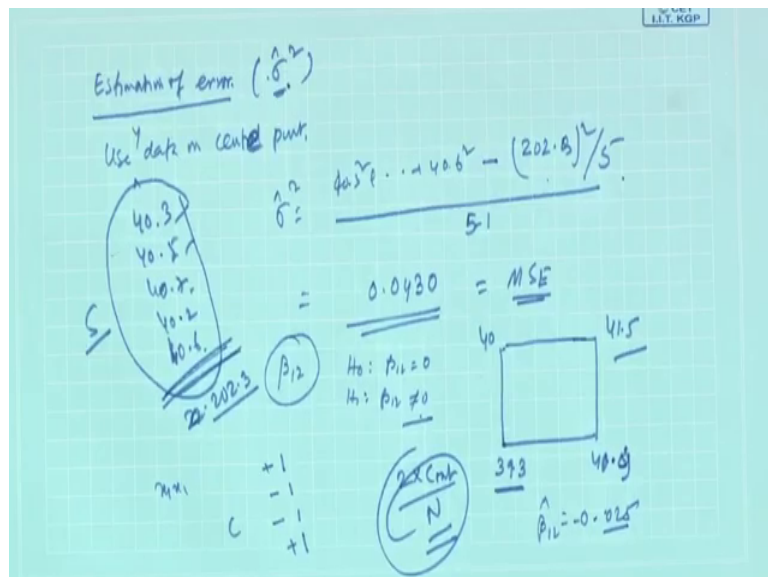 I.I.T. KGP
Estimation of error. (σ̂²)
Use y data in central point.
40.3
40.5
40.7.
40.2
40.6.
5
202.3
σ̂² = 40.3² + ... + 40.6² - (202.3)²/5
5-1
= 0.0430 = MSE
β₁₂
H₀: β₁₂ = 0
H₁: β₁₂ ≠ 0
40 41.5
39.3 40.9
β̂₁₂ = -0.025
+1
-1
C -1
+1
N